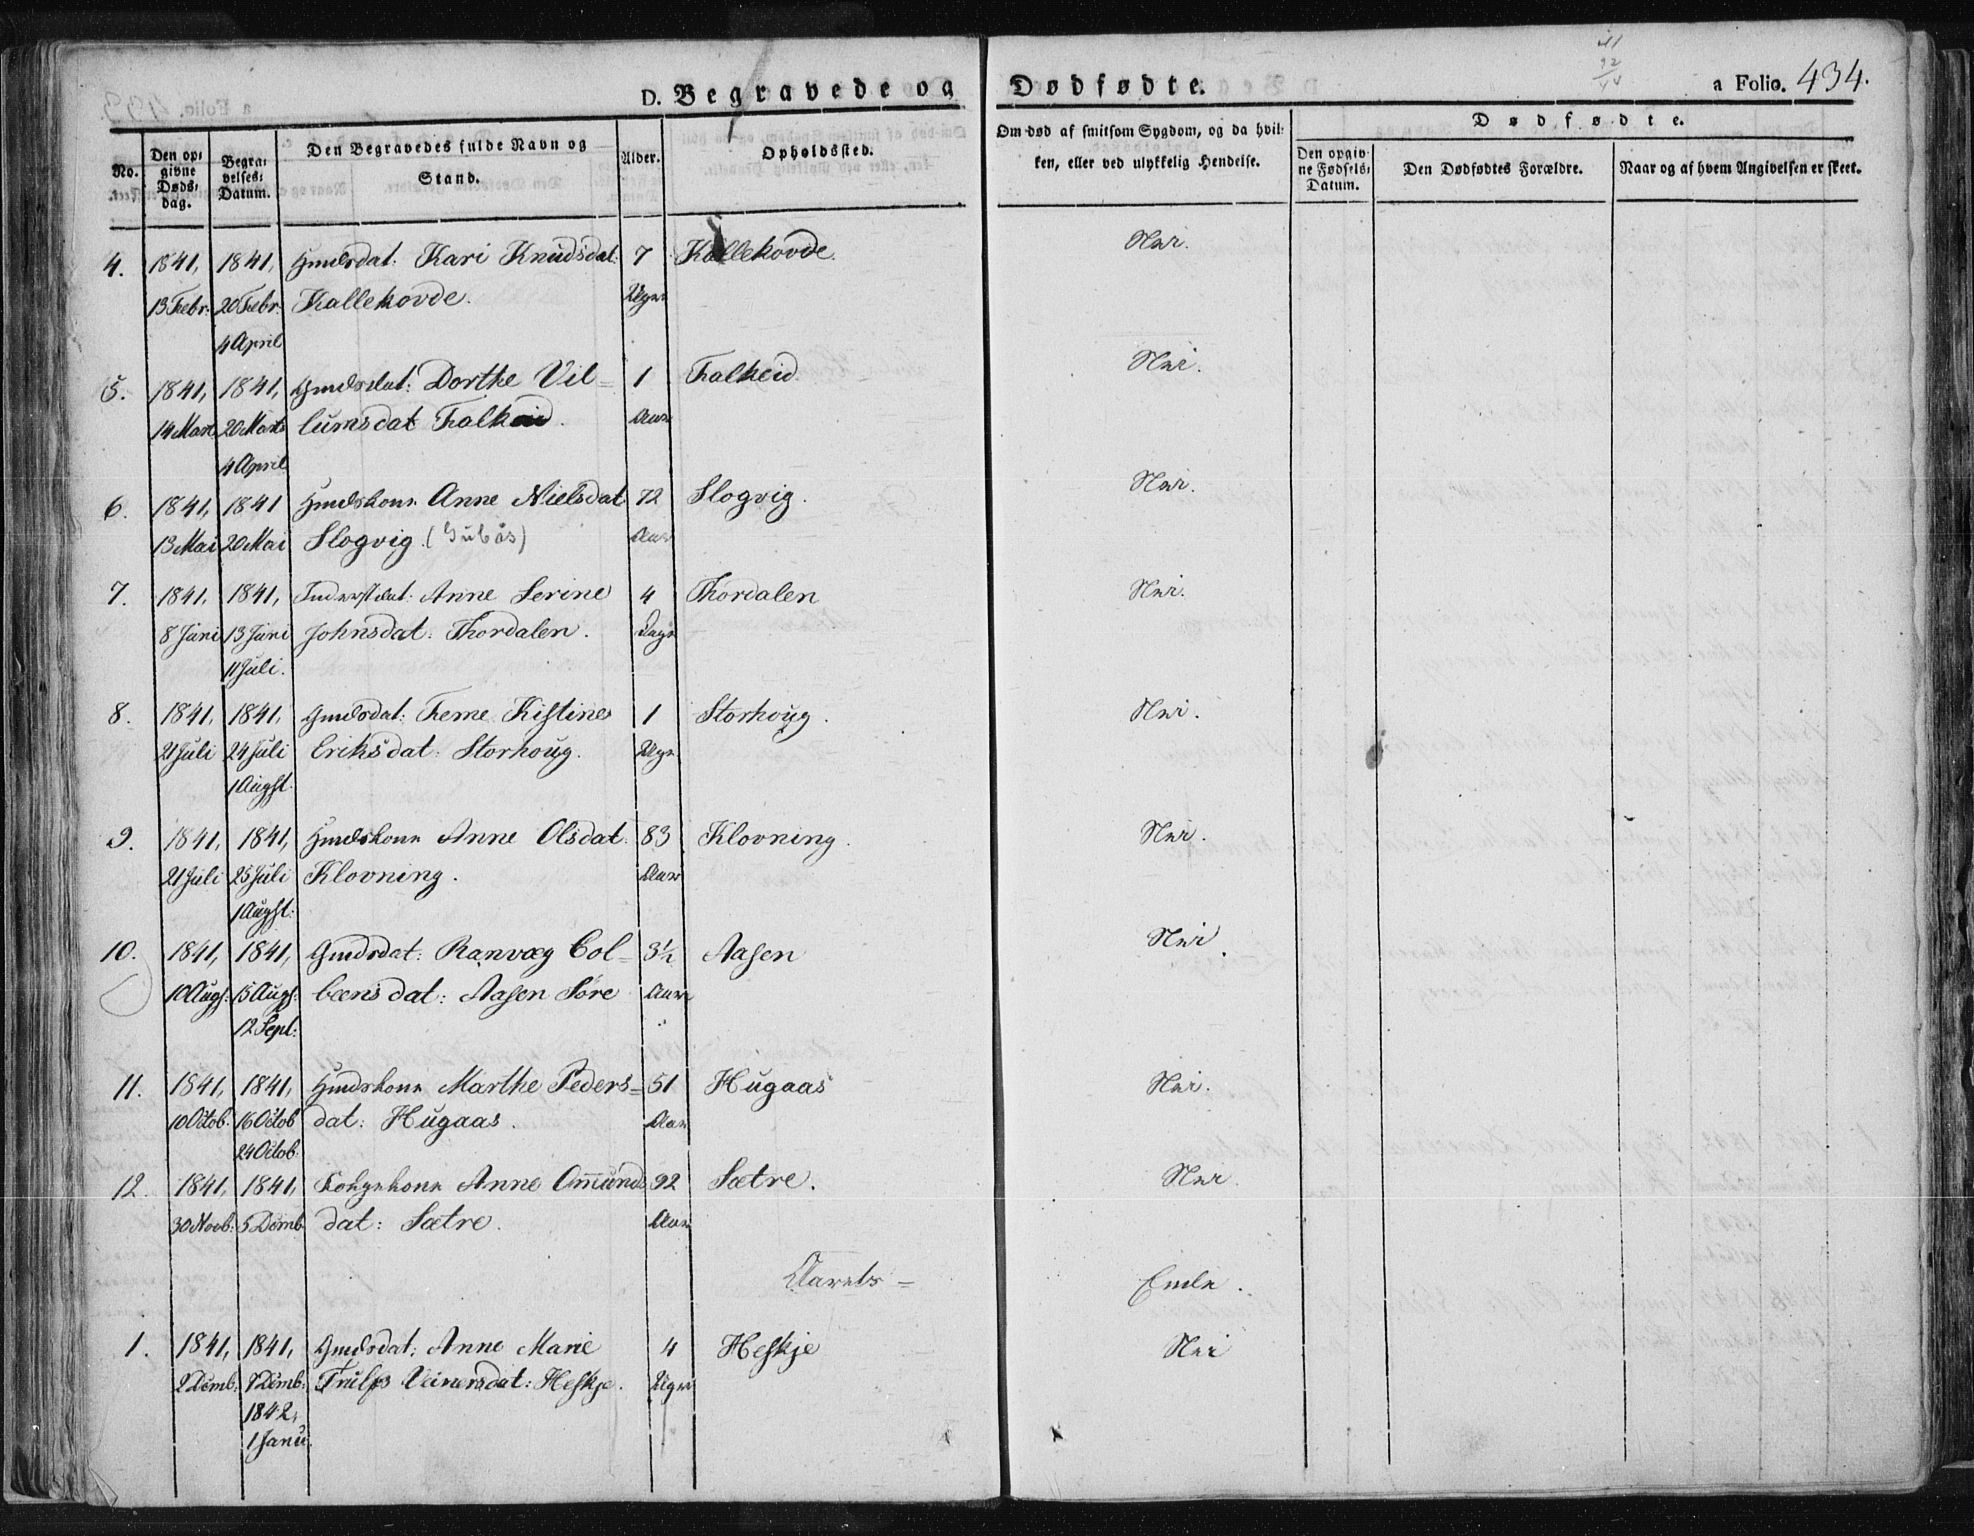 D. Begravede og Dødfødte.
a Folio. 434.
No.
Den op: givne Døds: dag.
Begra: velses: Datum.
Den Begravedes fulde Navn og Stand.
Alder.
Opholdssted.
Om død af smitsom Sygdom, og da hvil: ken, eller ved ulykkelig Hendelse.
Dødfødte.
Den opgiv: ne Fødsels: Datum.
Den Dødfødtes Forældre.
Naar og af hvem Angivelsen er skeet.
4. 1841, 1841, Gmdsdat: Kari Knudsdat: 7 Kallekovde. Nei.
13 Febr: 20 Febr: Kallekovde. Uger
4 April
5. 1841, 1841, Gmdsdat: Dorthe Vil= 1 Falkeid. Nei.
14 Mart 20 Marts lumsdat Falkeid. Aar
4 April
6. 1841, 1841 Gmdskone Anne Nielsdat 72 Slogvig. Nei.
13 Mai 20 Mai Slogvig. Aar
7. 1841, 1841, Inderstdat: Anne Serine 4 Thordalen Nei.
8 Juni 13 Juni Johnsdat: Thordalen. Dage
11 Juli.
8. 1841, 1841, Gmdsdat: Kistine 1 Storhoug. Nei.
21 Juli 24 Juli Eriksdat: Storhoug. Uge
1 Augst.
9. 1841, 1841, Gmdskone Anne Olsdat: 83 Klovning. Nei.
21 Juli 25 Juli Klovning. Aar
1 Augst:
10. 1841, 1841, Gmdsdat: Ranvæg Col= 3½ Aasen Nei.
10 Augs: 15 Augs: beensdat: Aasen Søre Aar
12 Sept:
11. 1841, 1841, Gmdskone Marthe Peders= 51 Hugaas Nei.
10 Octob: 16 Octob dat: Hugaas. Aar
24 Octob:
12. 1841, 1841, Anne Omunds 92 Sætre. Nei.
30 Novb: 5 Decmb dat: Sætre. Aar
Aarets= Ende.
1. 1841, 1841, Gmdsdat: Anne Marie 4 Heskje Nei
2 Decmb: 7 Decmb: Veinersdat: Heskje. Uger
1842,
1 Janu: